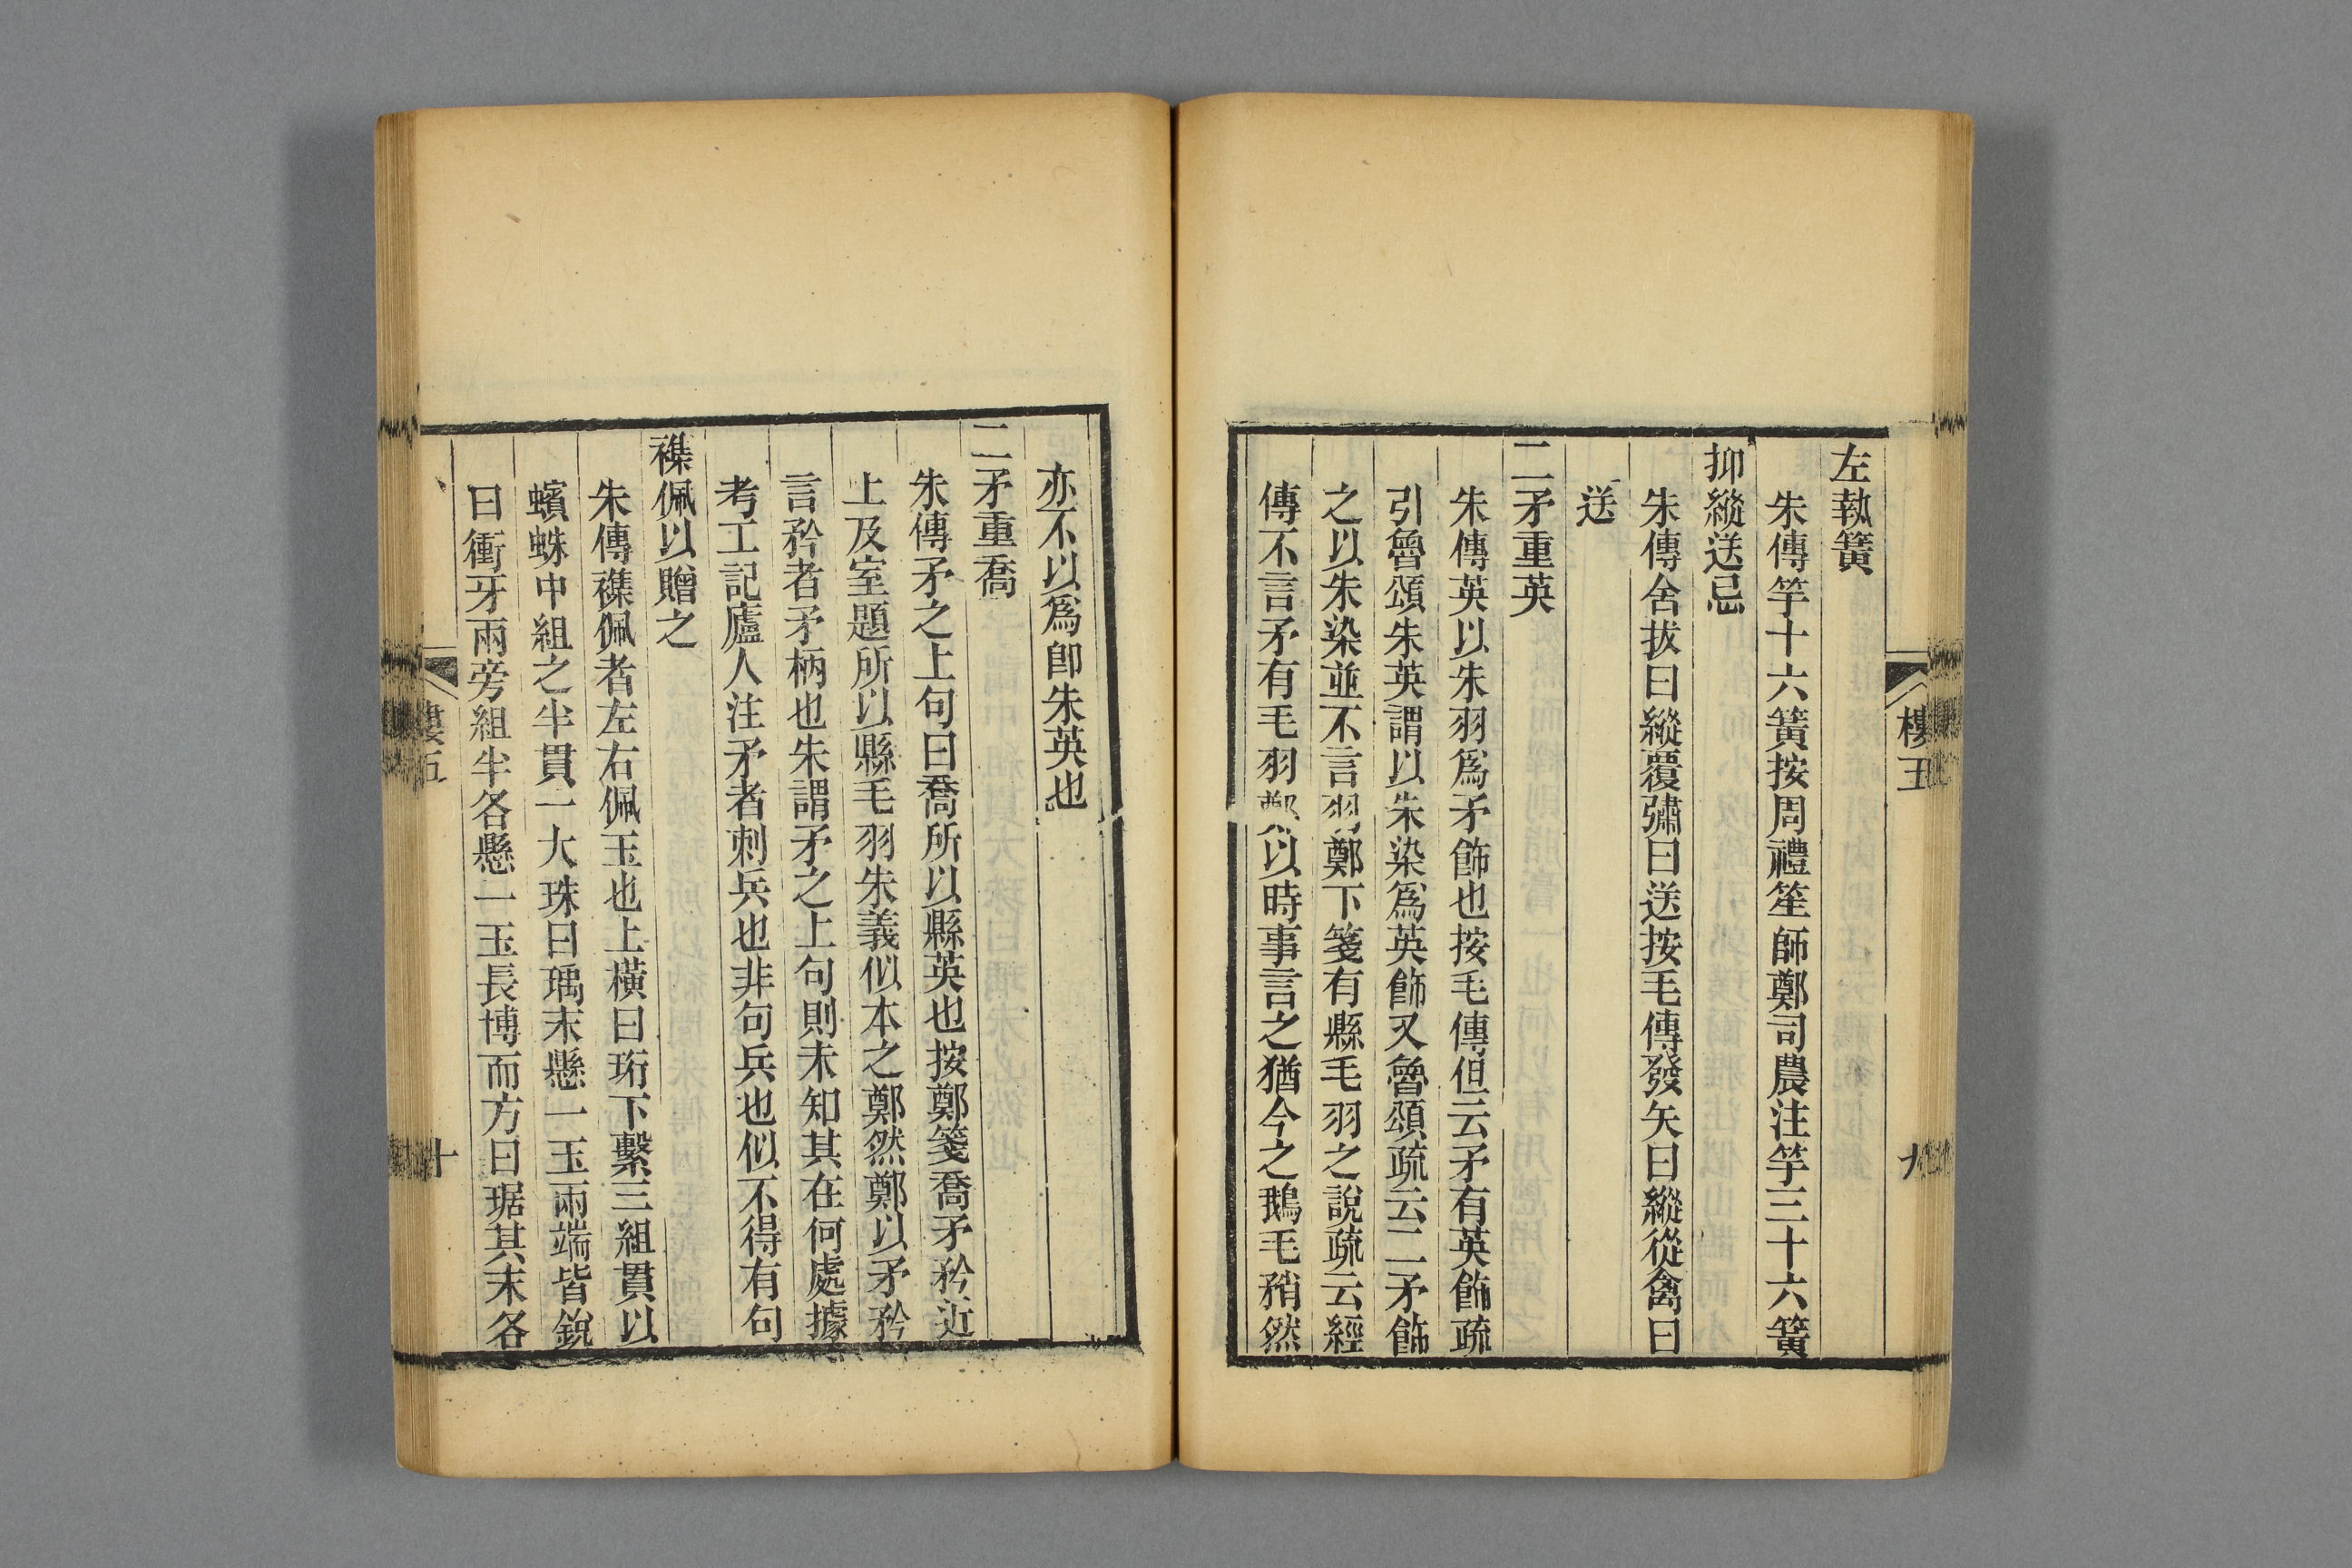 左執簧
朱傳竽十六簧按周禮笙師鄭司農注竽三十六簧
抑縱送忌
朱傳舍拔曰縱覆彇曰送按毛傳發矢曰縱從禽曰
送
二矛重英
朱傳英以朱羽爲矛飾也按毛傳但云矛有英飾疏
引魯頌朱英謂以朱染爲英飾又魯頌疏云二矛飾
之以朱染並不言羽鄭下箋有縣毛羽之說疏云經
傳不言矛有毛羽鄭以時事言之猶今之鵝毛矟然
樓五
九
亦不以爲卽朱英也
二矛重喬
朱傳矛之上句曰喬所以縣英也按鄭箋喬矛矜近
上及室題所以縣毛羽朱義似本之鄭然鄭以矛矜
言矜者矛柄也朱謂矛之上句則未知其在何處據
考工記廬人注矛者刺兵也非句兵也似不得有句
襍佩以贈之
朱傳襍佩者左右佩玉也上橫曰珩下繫三組貫以
蠙蛛中組之半貫一大珠曰瑀末懸一玉兩端皆銳
曰衝牙兩旁組半各懸一玉長博而方曰琚其末各
樓五
十